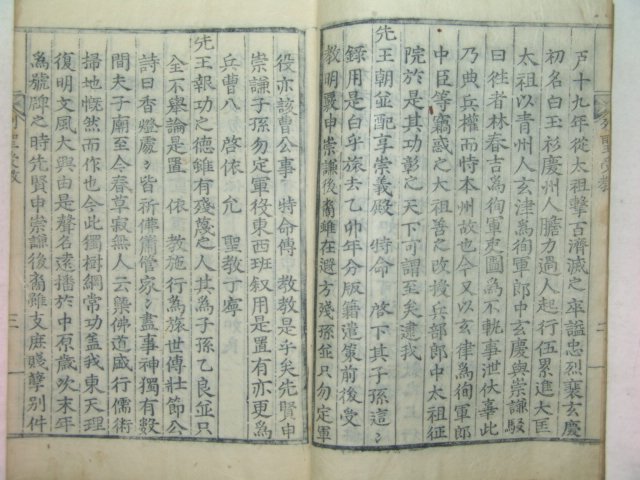 戸十九年從太祖擊百濟滅之卒謚忠烈裵玄慶
初名白玉衫慶州人膽力過人起行伍累進大匡
太祖以青州人玄律為徇軍郎中玄慶與崇謙駁
曰往者林春吉為徇軍吏圖為不軌事泄伏辜此
乃典兵權而恃本州故也今又以玄律為徇軍郎
中臣等竊惑之太祖善之改授兵部郎中太祖征
院於是其功彰之天下可謂至矣逮我
先王朝並配享崇義殿 特命 啓下其子孫這〻
錄用是白乎旅去乙卯年分版籍遣策前後受
教明嚴申崇謙後裔雖在遐方殘孫並只勿定軍
役亦該曹公事 特命傳 教教是乎矣先賢申
崇謙子孫勿定軍役東西班叙用是置有亦更為
兵曹八 啓依 允 聖教丁寧
先王報功之德雖有殘蔑之人其為子孫乙良並只
全不舉論是置 依 教施行為旅世傳壯節公
詩曰香燈處〻皆祈佛簫管家〻盡事神獨有數
間夫子廟至今春草寂無人云槩佛道盛行儒術
掃地慨然而作也今此獨樹綱常功盖我東天理
復明文風大興由是聲名遠播於中原歲次未年
為號碑之時先賢申崇謙後裔雖支庶賤孽別件